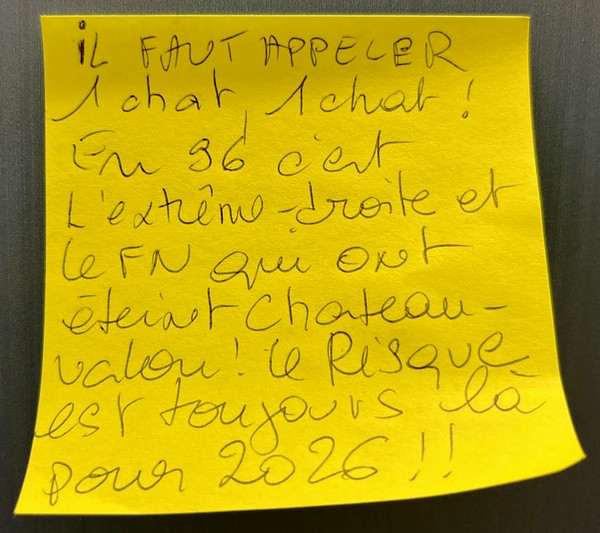 iL FAUT APPELER
1 chat, 1 chat !
En 96 c'est
L'extrême-droite et
le FN qui ont
éteint Chateau-
vallon ! le Risque
est toujours là
pour 2026 !!